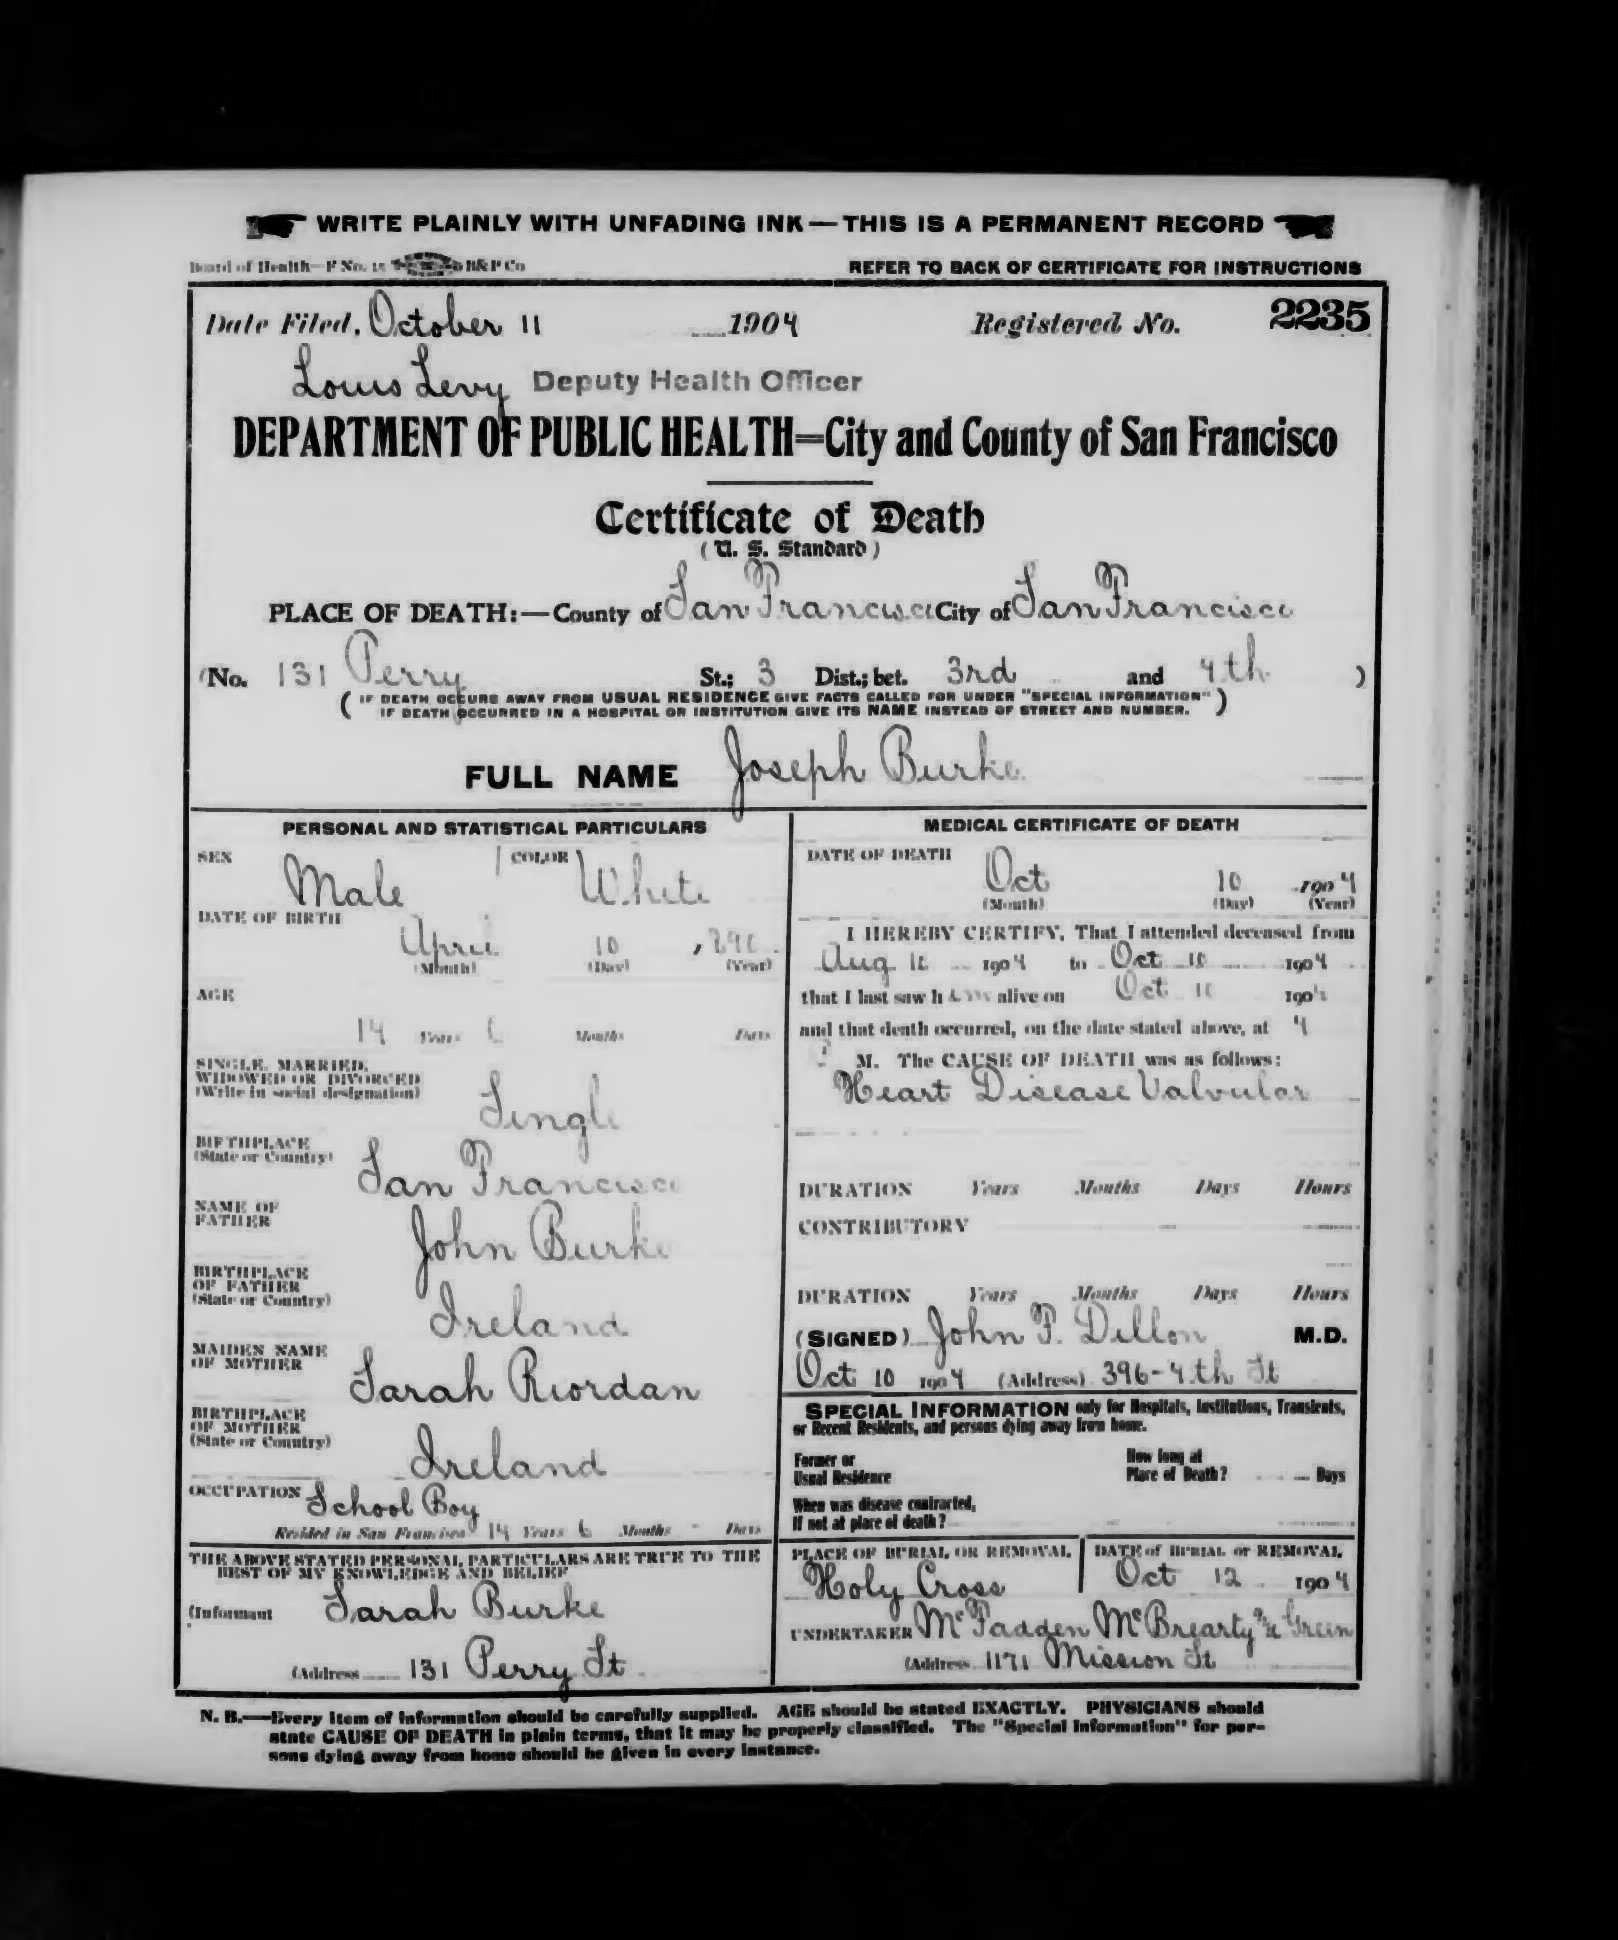 WRITE PLAINLY WITH UNFADING INK — THIS IS A PERMANENT RECORD
Board of Health—F No. 15 B&P Co
REFER TO BACK OF CERTIFICATE FOR INSTRUCTIONS
Date Filed, October 11 1904 Registered No. 2235
Louis Levy Deputy Health Officer
DEPARTMENT OF PUBLIC HEALTH=City and County of San Francisco
Certificate of Death
( U. S. Standard )
PLACE OF DEATH:—County of San Francisco City of San Francisco
(No. 131 Perry St.; 3 Dist.; bet. 3rd and 4th )
( IF DEATH OCCURS AWAY FROM USUAL RESIDENCE GIVE FACTS CALLED FOR UNDER "SPECIAL INFORMATION" )
IF DEATH OCCURRED IN A HOSPITAL OR INSTITUTION GIVE ITS NAME INSTEAD OF STREET AND NUMBER.
FULL NAME Joseph Burke
PERSONAL AND STATISTICAL PARTICULARS
SEX Male COLOR White
DATE OF BIRTH
April 10
(Month) (Day) (Year)
AGE
14 Years 6 Months Days
SINGLE, MARRIED,
WIDOWED OR DIVORCED
(Write in social designation)
Single
BIRTHPLACE
(State or Country)
San Francisco
NAME OF
FATHER
John Burke
BIRTHPLACE
OF FATHER
(State or Country)
Ireland
MAIDEN NAME
OF MOTHER
Sarah Riordan
BIRTHPLACE
OF MOTHER
(State or Country)
Ireland
OCCUPATION School Boy
Resided in San Francisco 14 Years 6 Months - Days
THE ABOVE STATED PERSONAL PARTICULARS ARE TRUE TO THE
BEST OF MY KNOWLEDGE AND BELIEF
(Informant Sarah Burke
(Address 131 Perry St
MEDICAL CERTIFICATE OF DEATH
DATE OF DEATH
Oct 10 1904
(Month) (Day) (Year)
I HEREBY CERTIFY, That I attended deceased from
Aug 1904 to Oct 10 1904
that I last saw h alive on Oct 10 1904
and that death occurred, on the date stated above, at 4
M. The CAUSE OF DEATH was as follows:
Heart Disease Valvular
DURATION Years Months Days Hours
CONTRIBUTORY
DURATION Years Months Days Hours
(SIGNED) John F. Dillon M.D.
Oct 10 1904 (Address) 396-4th St
SPECIAL INFORMATION only for Hospitals, Institutions, Transients,
or Recent Residents, and persons dying away from home.
Former or
Usual Residence
How long at
Place of Death? Days
When was disease contracted,
If not at place of death?
PLACE OF BURIAL OR REMOVAL
Holy Cross
DATE of BURIAL or REMOVAL
Oct 12 1904
UNDERTAKER McFadden McBrearty & Green
(Address 1171 Mission St
N. B.—Every item of information should be carefully supplied. AGE should be stated EXACTLY. PHYSICIANS should
state CAUSE OF DEATH in plain terms, that it may be properly classified. The "Special Information" for per-
sons dying away from home should be given in every instance.